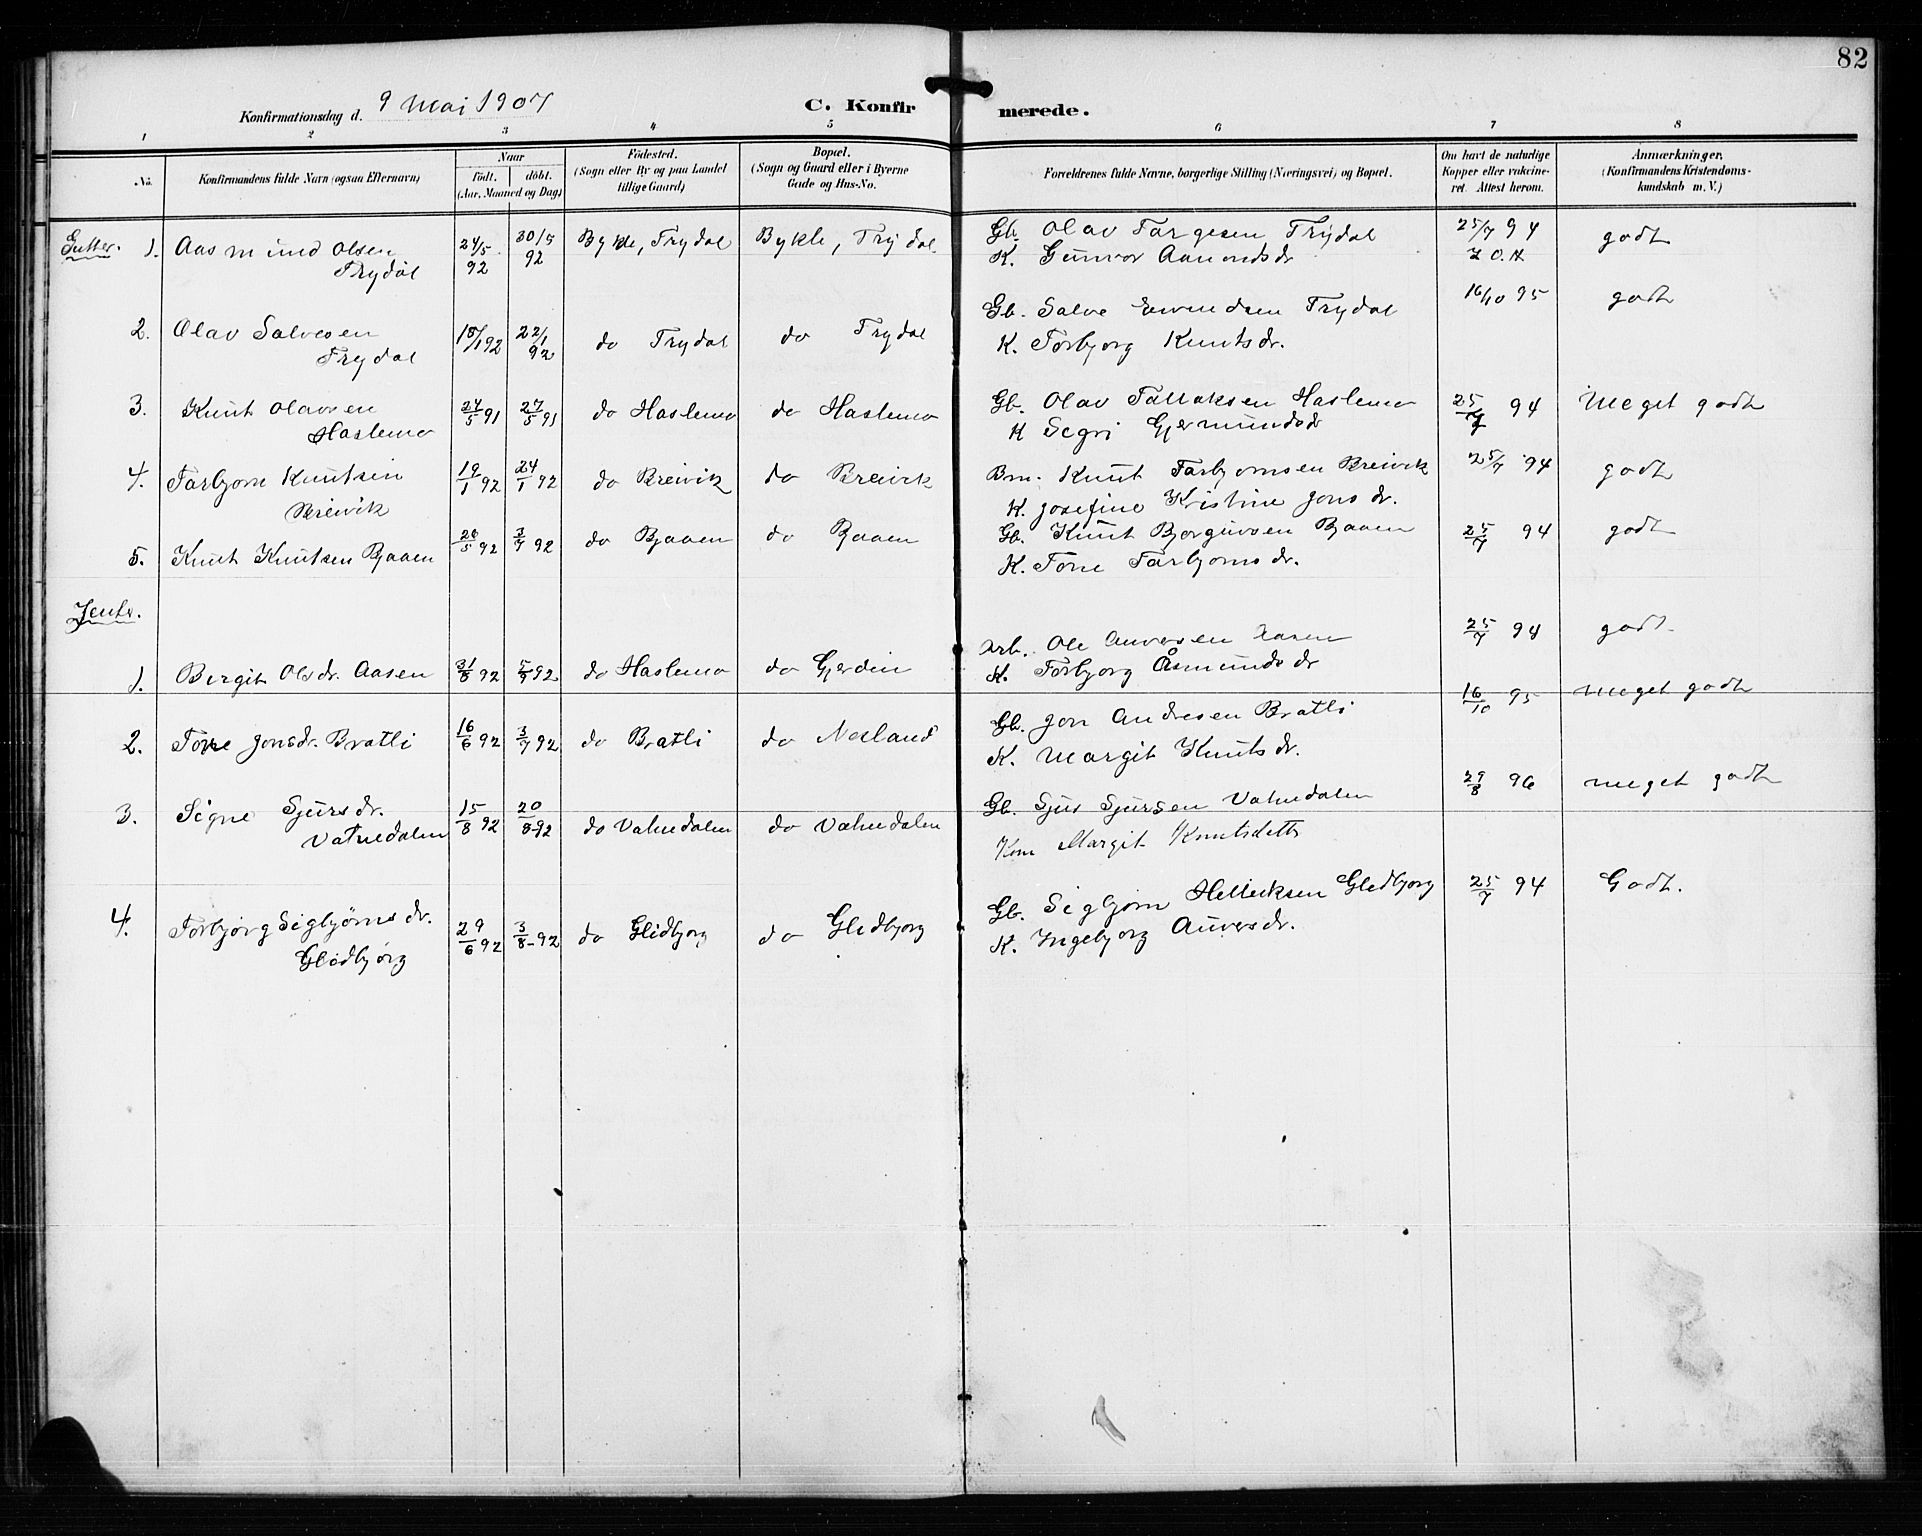 82
Konfirmationsdag d. 9 Mai 1907 C. Konfirmerede.
1 2 3 4 5 6 7 8
No. Konfirmandens fulde Navn (ogsaa Efternavn) Naar født. døbt. (Aar, Maaned og Dag) Fødested. (Sogn eller By og paa Landet tillige Gaard) Bopæl. (Sogn og Gaard eller i Byerne Gade og Hus-No. Forældrenes fulde Navne, borgerlige Stilling (Næringsvei) og Bopæl. Om havt de naturlige Kopper eller vakcineret. Attest herom. Anmærkninger. (Konfirmandens Kristendomskundskab m. V.)
Gutter. 1. Aasmund Olsen 24/5 30/5 Bykle, Trydal Bykle, Trydal Gb. Olav Targesen Trydal 25/7 94 godt
Trydal 92 92 K. Gunvor Aamondsdr
2. Olav Salvesen 15/1 92 22/1 92 do Trydal do Trydal Gb. Salve Eivindsen Trydal 16/10 95 godt
Trydal K. Torbjorg Knutsdr.
3. Knut Olavsen 24/5 91 27/5 91 do Haslemo do Haslemo Gb. Olav Tallaksen Haslemo 25/7 94 Meget godt
Haslemo K Segri Gjermundsdr
4. Tarbjorn Knutsen 19/1 92 24/1 92 do Breivik do Breivik Bm. Knut Tarbjornsen Breivik 25/7 94 godt
Breivik K. Josefine Kristine Jonsdr.
5. Knut Knutsen Bjaaen 20/5 92 3/7 92 do Bjaaen do Bjaaen Gb. Knut Bjorguvsen Bjaaen 25/7 94 godt
K. Tone Tarbjornsdr.
Jenter.
1. Bergit Olsdr. Aasen 31/8 92 5/9 92 do Haslemo do Gjerden Arb. Ole Auversen Aasen 25/7 94 godt
K. Torbjorg Åsmundsdr
2. Tone Jonsdr. Bratli 16/6 92 3/7 92 do Bratli do Nesland Gb. Jon Andresen Bratli 16/10 95 meget godt
K. Margit Knutsdr.
3. Signe Sjursdr. 15/8 92 20/8-92 do Vatnedalen do Vatnedalen Gb. Sjur Sjursen Vatnedalen 29/8 96 meget godt
Vatnedalen Kone Margit Knutsdatter
4. Torbjørg Sigbjørnsdr. 29/6 92 3/8-92 do Glidbjorg do Glidbjorg Gb. Sigbjørn Helleiksen Glidbjorg 25/7 94 Godt.
Glidbjørg K. Ingebjorg Auversdr.